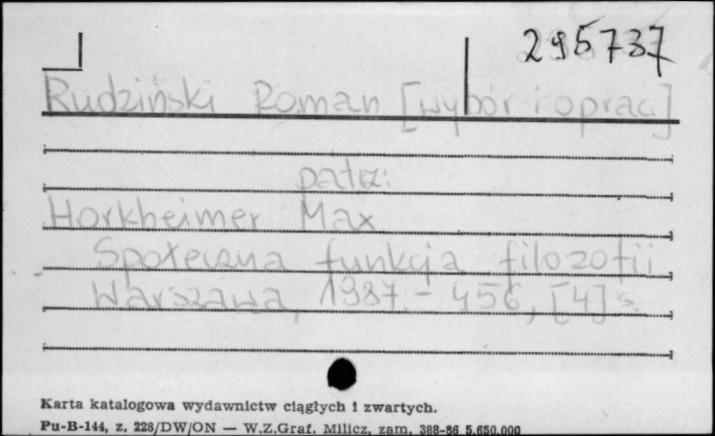 295737
Rudziński Roman [wybór i oprac.]
patrz:
Horkheimer Max
Społeczna funkcja filozofii
Warszawa, 1987. - 456, [4] s.
Karta katalogowa wydawnictw ciągłych i zwartych.
Pu-B-144, z. 228/DW/ON — W.Z.Graf. Milicz, zam. 388-86 5.650.000